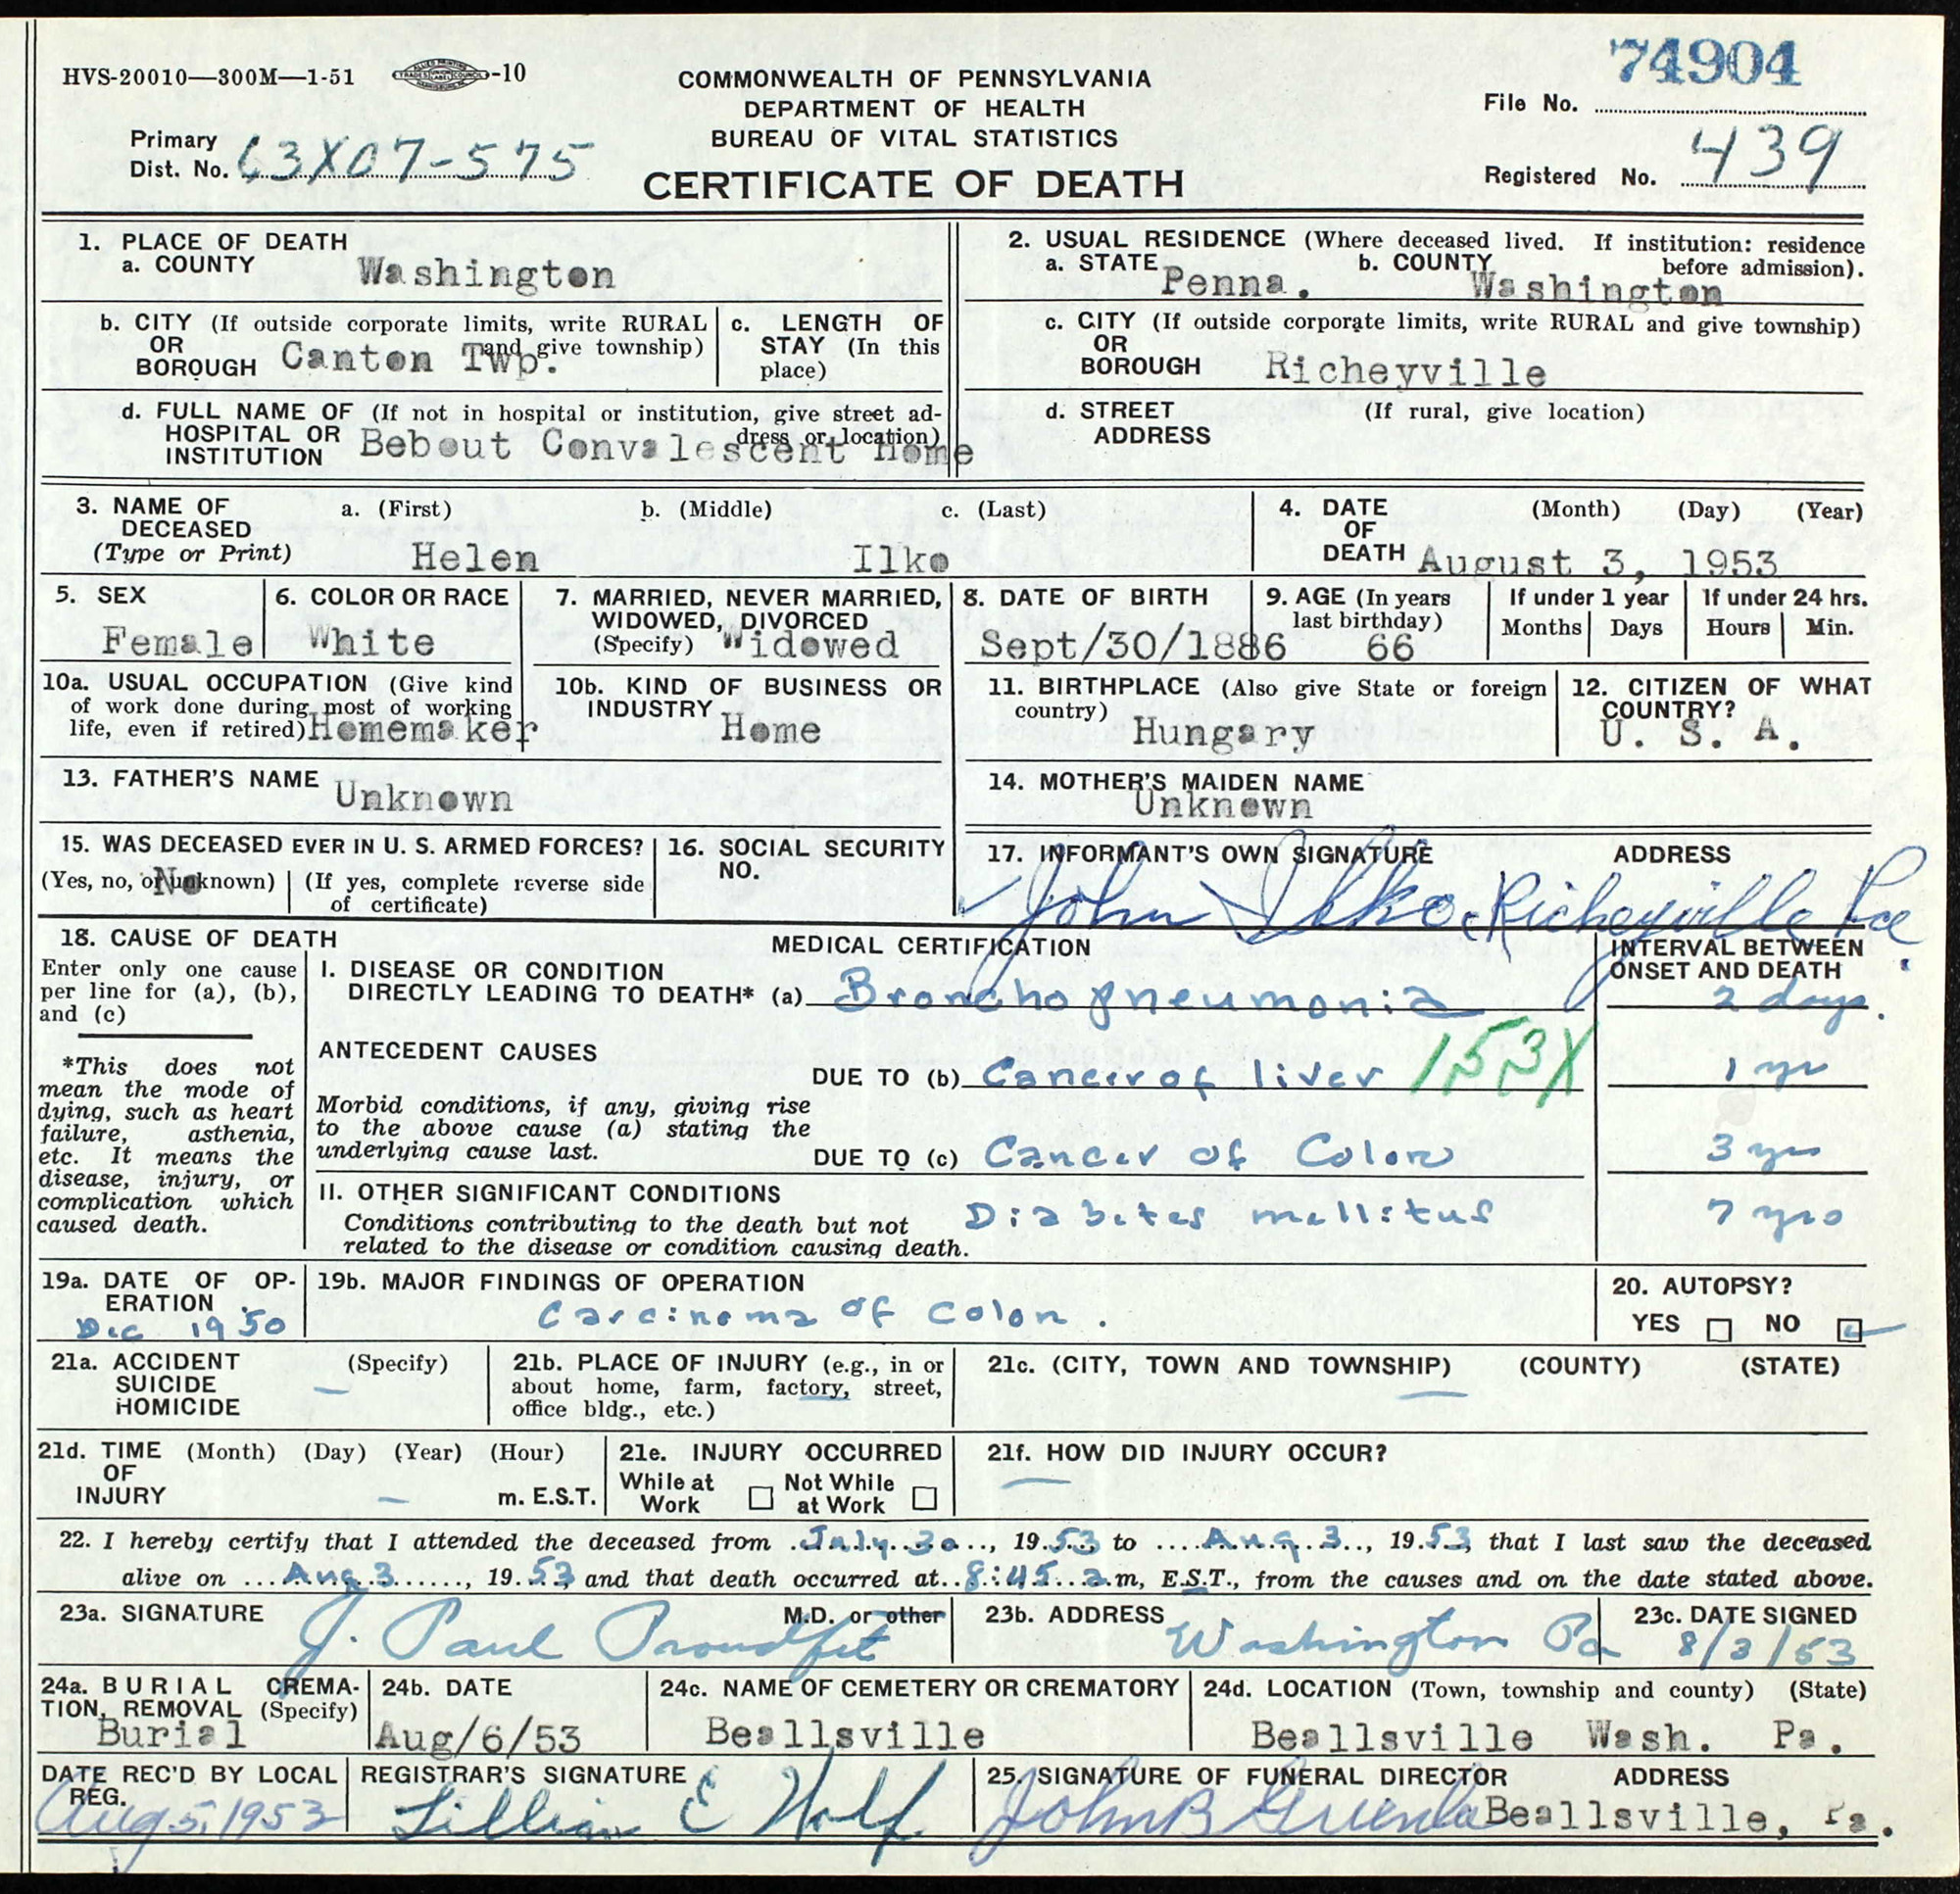 HVS-20010—300M—1-51 -10
COMMONWEALTH OF PENNSYLVANIA
DEPARTMENT OF HEALTH
BUREAU OF VITAL STATISTICS
CERTIFICATE OF DEATH
74904
File No.
Primary
Dist. No. 63X07-575
Registered No. 439
1. PLACE OF DEATH
a. COUNTY Washington
2. USUAL RESIDENCE (Where deceased lived. If institution: residence before admission).
a. STATE Penna. b. COUNTY Washington
b. CITY (If outside corporate limits, write RURAL and give township)
OR
BOROUGH Canton Twp.
c. LENGTH OF
STAY (In this
place)
c. CITY (If outside corporate limits, write RURAL and give township)
OR
BOROUGH Richeyville
d. FULL NAME OF (If not in hospital or institution, give street address or location)
HOSPITAL OR
INSTITUTION Bebout Convalescent Home
d. STREET (If rural, give location)
ADDRESS
3. NAME OF
DECEASED
(Type or Print)
a. (First) b. (Middle) c. (Last)
Helen Ilko
4. DATE (Month) (Day) (Year)
OF
DEATH August 3, 1953
5. SEX
Female
6. COLOR OR RACE
White
7. MARRIED, NEVER MARRIED,
WIDOWED, DIVORCED
(Specify) Widowed
8. DATE OF BIRTH
Sept/30/1886
9. AGE (In years
last birthday)
66
If under 1 year
Months Days
If under 24 hrs.
Hours Min.
10a. USUAL OCCUPATION (Give kind
of work done during most of working
life, even if retired) Homemaker
10b. KIND OF BUSINESS OR
INDUSTRY
Home
11. BIRTHPLACE (Also give State or foreign
country)
Hungary
12. CITIZEN OF WHAT
COUNTRY?
U. S. A.
13. FATHER'S NAME
Unknown
14. MOTHER'S MAIDEN NAME
Unknown
15. WAS DECEASED EVER IN U. S. ARMED FORCES?
(Yes, no, or unknown) (If yes, complete reverse side
of certificate)
No
16. SOCIAL SECURITY
NO.
17. INFORMANT'S OWN SIGNATURE ADDRESS
John Ilko, Richeyville Pa.
18. CAUSE OF DEATH
Enter only one cause
per line for (a), (b),
and (c)
*This does not
mean the mode of
dying, such as heart
failure, asthenia,
etc. It means the
disease, injury, or
complication which
caused death.
MEDICAL CERTIFICATION
INTERVAL BETWEEN
ONSET AND DEATH
I. DISEASE OR CONDITION
DIRECTLY LEADING TO DEATH* (a) Bronchopneumonia 2 days.
ANTECEDENT CAUSES
DUE TO (b) Cancer of liver 153X 1 yr
Morbid conditions, if any, giving rise
to the above cause (a) stating the
underlying cause last.
DUE TO (c) Cancer of Colon 3 yrs
II. OTHER SIGNIFICANT CONDITIONS
Conditions contributing to the death but not
related to the disease or condition causing death.
Diabetes mellitus 7 yrs
19a. DATE OF OPERATION
Dec 1950
19b. MAJOR FINDINGS OF OPERATION
Carcinoma of colon.
20. AUTOPSY?
YES NO
21a. ACCIDENT (Specify)
SUICIDE
HOMICIDE
—
21b. PLACE OF INJURY (e.g., in or
about home, farm, factory, street,
office bldg., etc.)
21c. (CITY, TOWN AND TOWNSHIP) (COUNTY) (STATE)
21d. TIME (Month) (Day) (Year) (Hour)
OF
INJURY — m. E.S.T.
21e. INJURY OCCURRED
While at
Work
Not While
at Work
21f. HOW DID INJURY OCCUR?
22. I hereby certify that I attended the deceased from July 30, 1953 to Aug 3, 1953, that I last saw the deceased
alive on Aug 3, 1953, and that death occurred at 8:45 a m, E.S.T., from the causes and on the date stated above.
23a. SIGNATURE M.D. or other
J. Paul Proudfit
23b. ADDRESS
Washington Pa
23c. DATE SIGNED
8/3/53
24a. BURIAL CREMATION, REMOVAL (Specify)
Burial
24b. DATE
Aug/6/53
24c. NAME OF CEMETERY OR CREMATORY
Beallsville
24d. LOCATION (Town, township and county) (State)
Beallsville Wash. Pa.
DATE REC'D BY LOCAL
REG.
Aug 5, 1953
REGISTRAR'S SIGNATURE
Lillian E Wolf
25. SIGNATURE OF FUNERAL DIRECTOR ADDRESS
John B Beallsville, Pa.